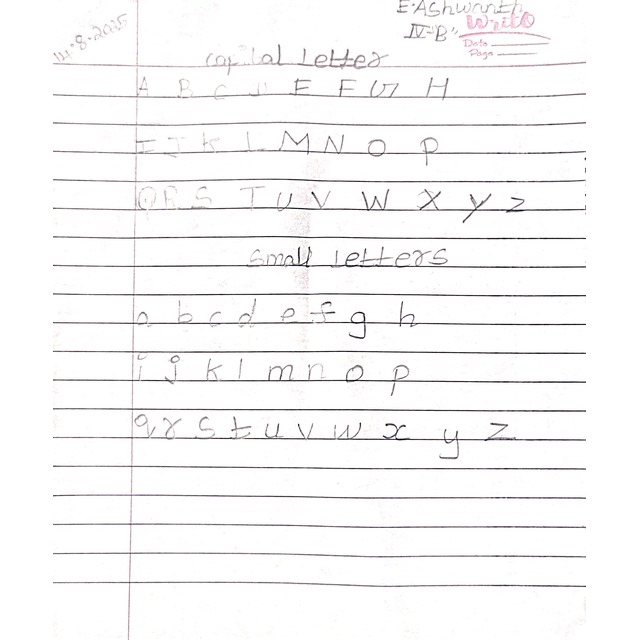 E.Ashwanth
14-8-2025
IV-"B"
Write
Date
Page
Capital letter
A B C D E F G H
I J K L M N O P
Q R S T U V W X Y Z
Small letters
a b c d e f g h
i j k l m n o p
q r s t u v w x y z